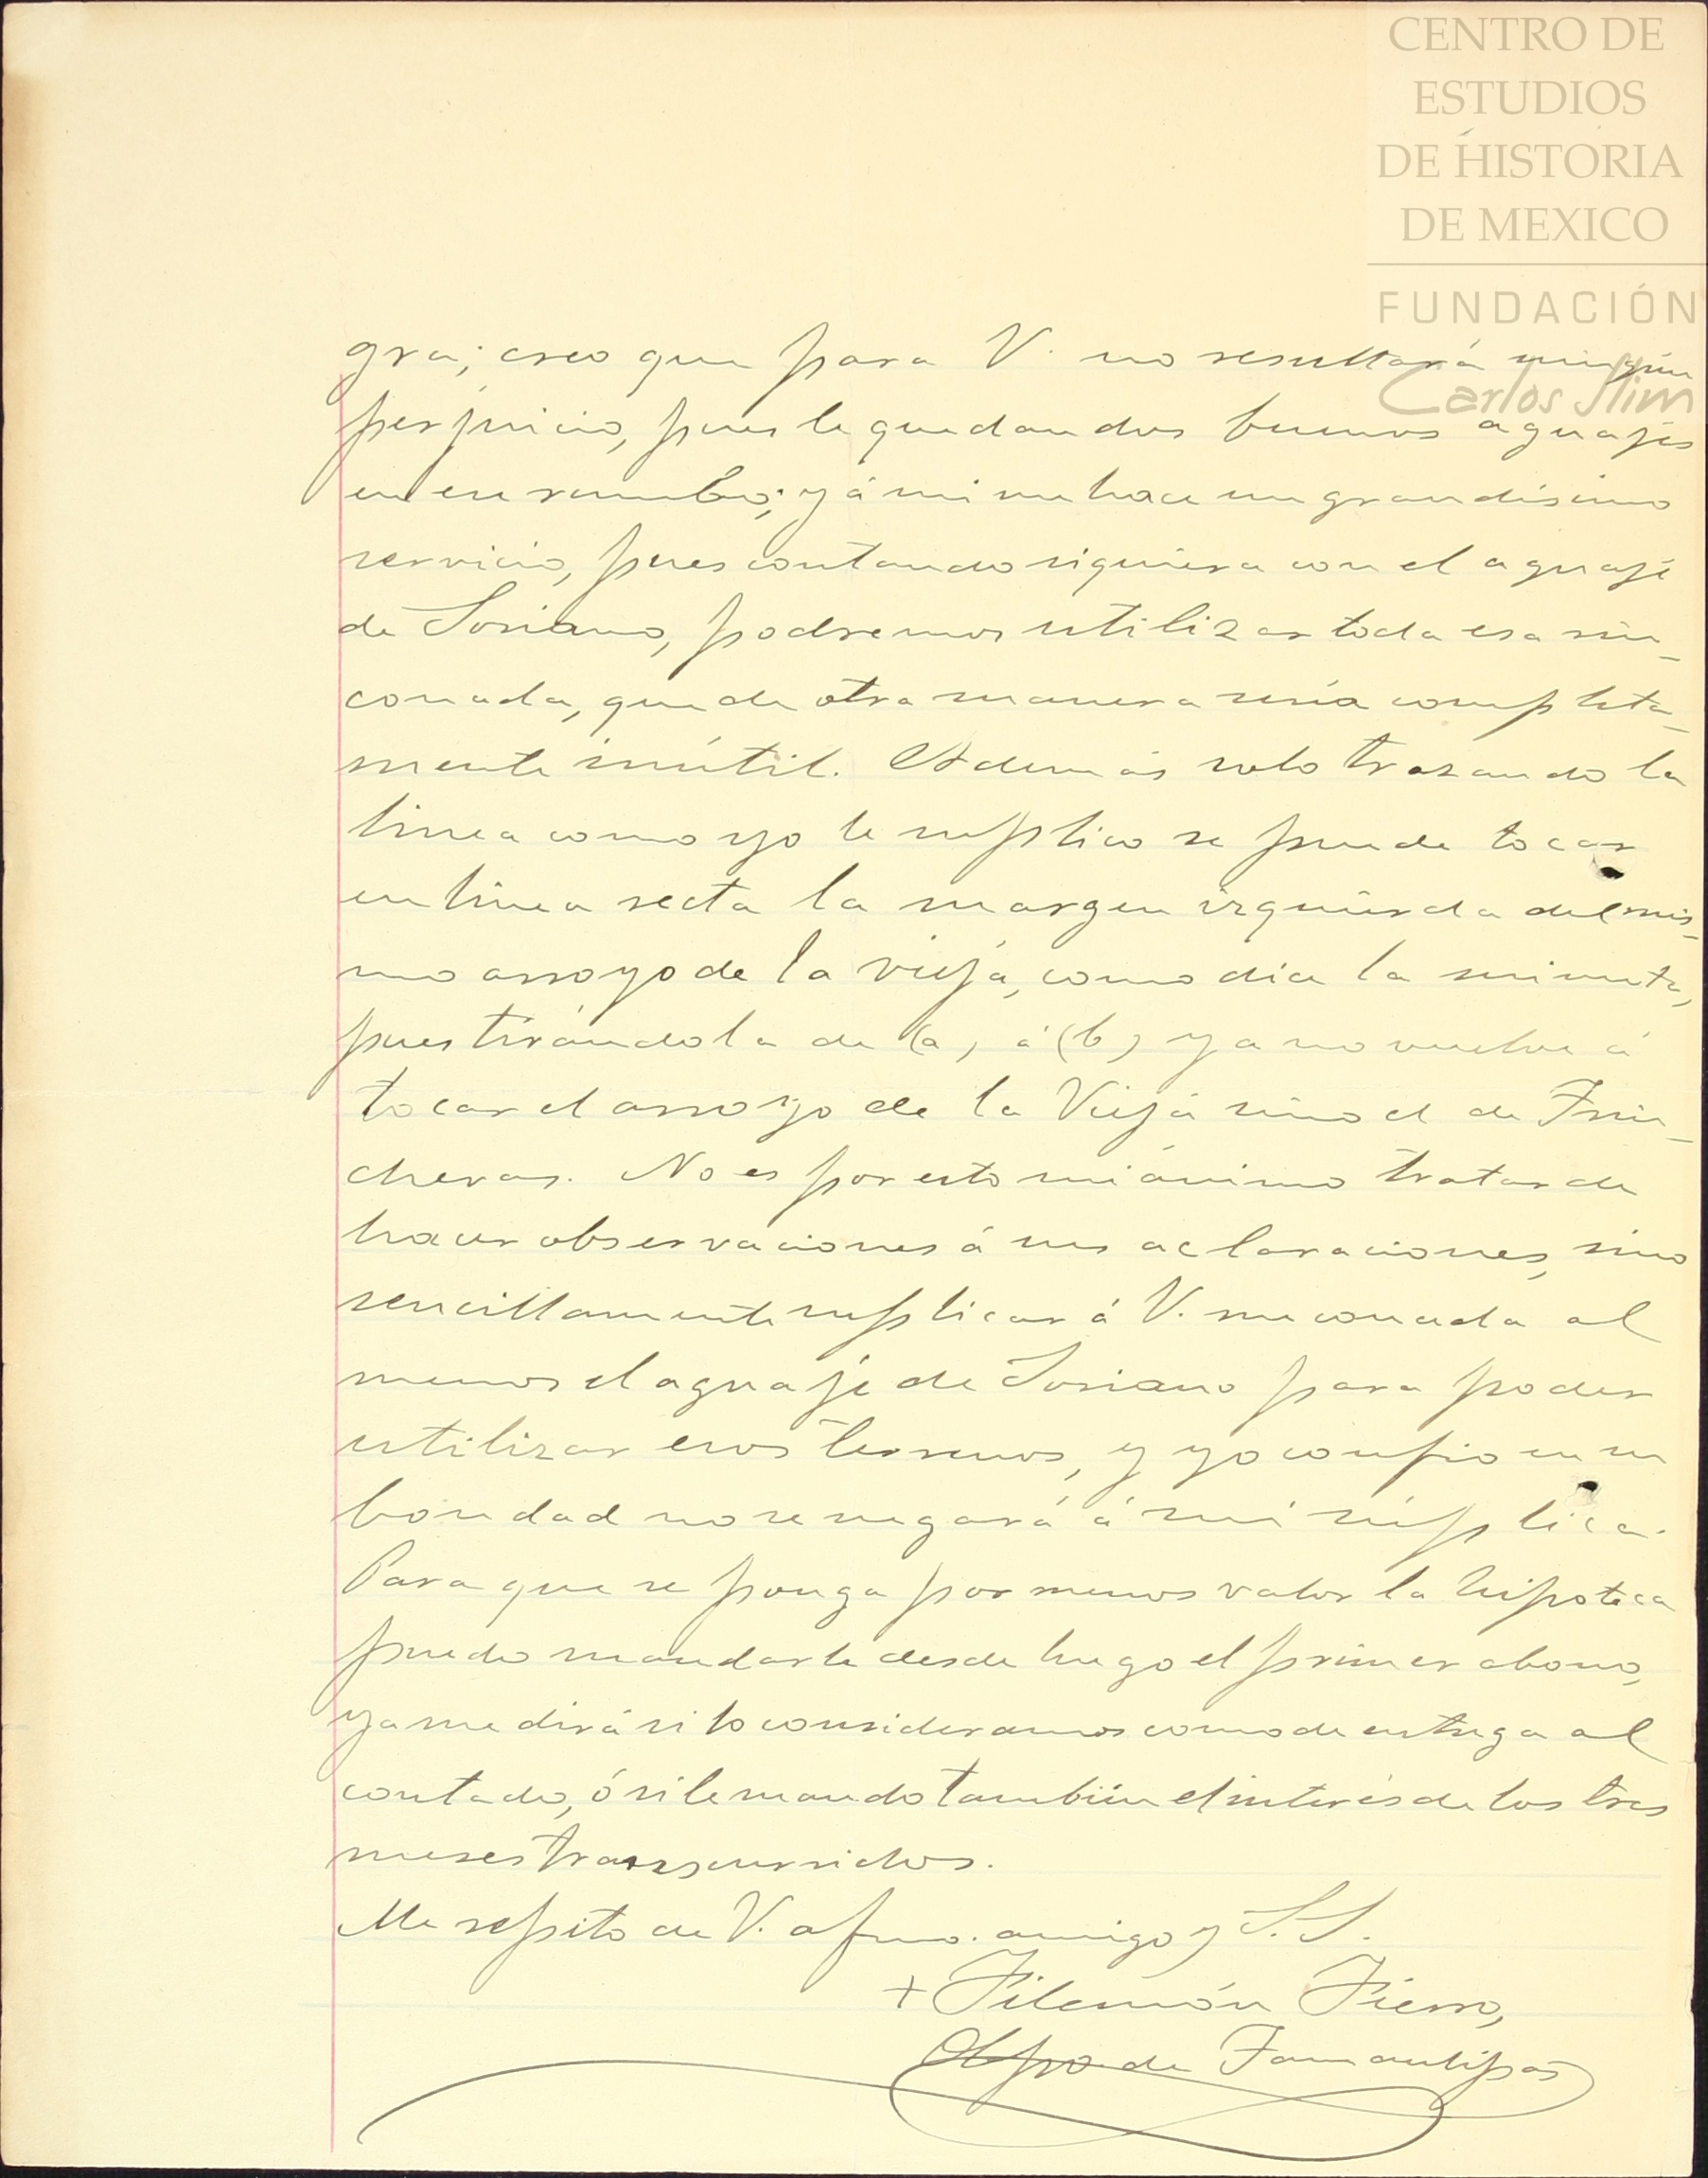 CENTRO DE
ESTUDIOS
DE HISTORIA
DE MEXICO
FUNDACIÓN
Carlos Slim
gra; creo que para V. no resultará ningún
perjuicio, pues le quedan dos buenos aguajes
en ese rumbo; y á mi me hace un grandísimo
servicio, pues contando siquiera con el aguaje
de Soriano, podremos utilizar toda esa rin-
conada, que de otra manera sería completa-
mente inútil. Además solo trazando la
linea como yo le suplico se puede tocar
en linea recta la margen izquierda del mis-
mo arroyo de la vieja, como dice la minuta,
pues tirándola de (a) á (b) ya no vuelve á
tocar el arroyo de la Vieja sino el de Trin-
cheras. No es por esto mi ánimo tratar de
hacer observaciones á sus aclaraciones, sino
sencillamente suplicar á V. me conceda al
menos el aguaje de Soriano para poder
utilizar esos terrenos, y yo confio en su
bondad no se negará á mi súplica.
Para que se ponga por menos valor la hipoteca
puedo mandarle desde luego el primer abono,
ya me dirá si lo consideramos como de entrega al
contado, ó si le mando también el interés de los tres
meses transcurridos.
Me repito de V. afmo. amigo y S.S.
+ Filemón Fierro,
Obpo de Tamaulipas